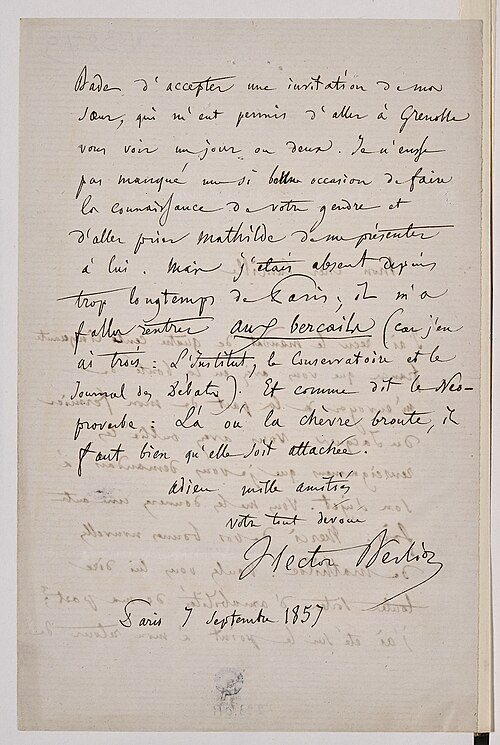 Bade d'accepter une invitation de ma
sœur, qui m'eut permis d'aller à Grenoble
vous voir un jour ou deux. Je n'eusse
pas manqué une si belle occasion de faire
la connaissance de votre gendre et
d'aller prier Mathilde de me présenter
à lui. Mais j'étais absent depuis
trop longtemps de Paris, il m'a
fallu rentrer aux bercails (car j'en
ai trois : L'Institut, le Conservatoire et le
Journal des Débats). Et comme dit le Neo-
proverbe : Là où la chèvre broute, il
faut bien qu'elle soit attachée.
adieu mille amitiés
votre tout dévoué
Hector Berlioz
Paris 7 Septembre 1857